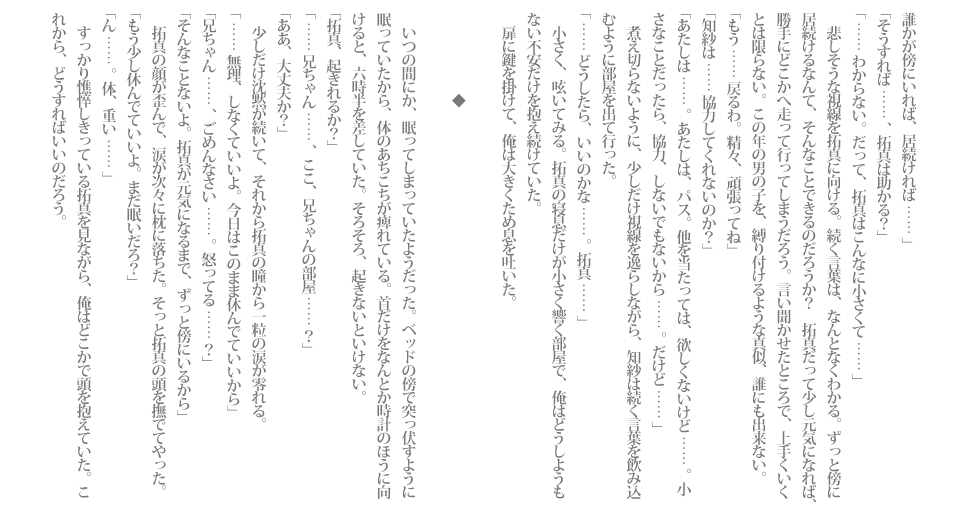 誰かが傍にいれば、居続ければ……」
「そうすれば……、拓真は助かる？」
「……わからない。だって、拓真はこんなに小さくて……」
　悲しそうな視線を拓真に向ける。続く言葉は、なんとなくわかる。ずっと傍に
居続けるなんて、そんなことできるのだろうか？　拓真だって少し元気になれば、
勝手にどこかへ走って行ってしまうだろう。言い聞かせたところで、上手くいく
とは限らない。この年の男の子を、縛り付けるような真似、誰にも出来ない。
「もう……戻るわ。精々、頑張ってね」
「知紗は……協力してくれないのか？」
「あたしは……。あたしは、パス。他を当たっては、欲しくないけど……。小
さなことだったら、協力、しないでもないから……。だけど……」
　煮え切らないように、少しだけ視線を逸らしながら、知紗は続く言葉を飲み込
むように部屋を出て行った。
「……どうしたら、いいのかな……。拓真……」
　小さく、呟いてみる。拓真の寝息だけが小さく響く部屋で、俺はどうしようも
ない不安だけを抱え続けていた。
　扉に鍵を掛けて、俺は大きくため息を吐いた。
◆
　いつの間にか、眠ってしまっていたようだった。ベッドの傍で突っ伏すように
眠っていたから、体のあちこちが痺れている。首だけをなんとか時計のほうに向
けると、六時半を差していた。そろそろ、起きないといけない。
「拓真、起きれるか？」
「……兄ちゃん……、ここ、兄ちゃんの部屋……？」
「ああ、大丈夫か？」
　少しだけ沈黙が続いて、それから拓真の瞳から一粒の涙が零れる。
「……無理、しなくていいよ。今日はこのまま休んでていいから」
「兄ちゃん……、ごめんなさい……。怒ってる……？」
「そんなことないよ。拓真が元気になるまで、ずっと傍にいるから」
　拓真の顔が歪んで、涙が次々に枕に落ちた。そっと拓真の頭を撫でてやった。
「もう少し休んでていいよ。まだ眠いだろ？」
「ん……。体、重い……」
　すっかり憔悴しきっている拓真を見ながら、俺はどこかで頭を抱えていた。こ
れから、どうすればいいのだろう。